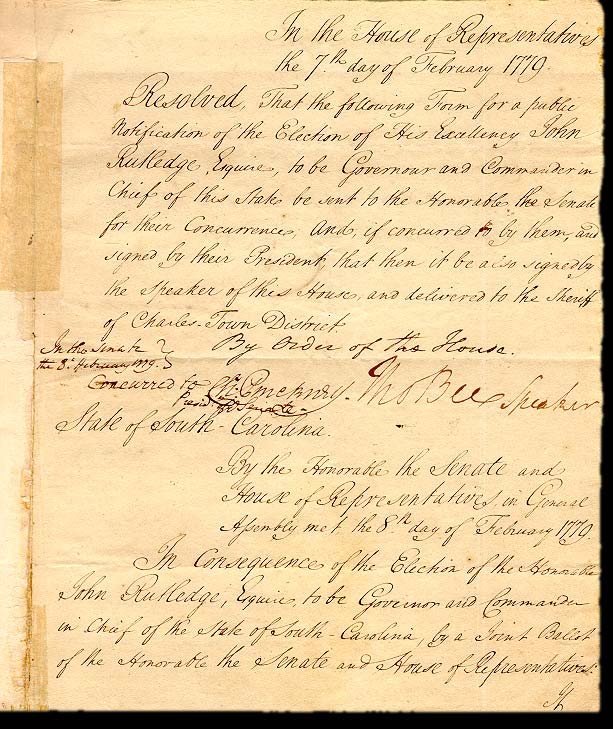 In the House of Representatives
the 7.th day of February 1779.
Resolved, That the following Form for a public
Notification of the Election of His Excellency John
Rutledge, Esquire, to be Governour and Commander in
Chief of this State be sent to the Honorable the Senate
for their Concurrence, And, if concurred to by them, and
signed by their President, that then it be also signed by
the Speaker of this House, and delivered to the Sheriff
of Charles-Town District
By Order of the House.
In the Senate
the 8.th February 1779.
Concurred to
Chs. Pinckney.
Presid.t of Senate
Tho Bee Speaker
State of South-Carolina.
By the Honorable the Senate and
House of Representatives, in General
Assembly met the 8.th day of February 1779.
In Consequence of the Election of the Honorable
John Rutledge, Esquire, to be Governor and Commander
in Chief of the State of South-Carolina, by a Joint Ballot
of the Honorable the Senate and House of Representatives:
It